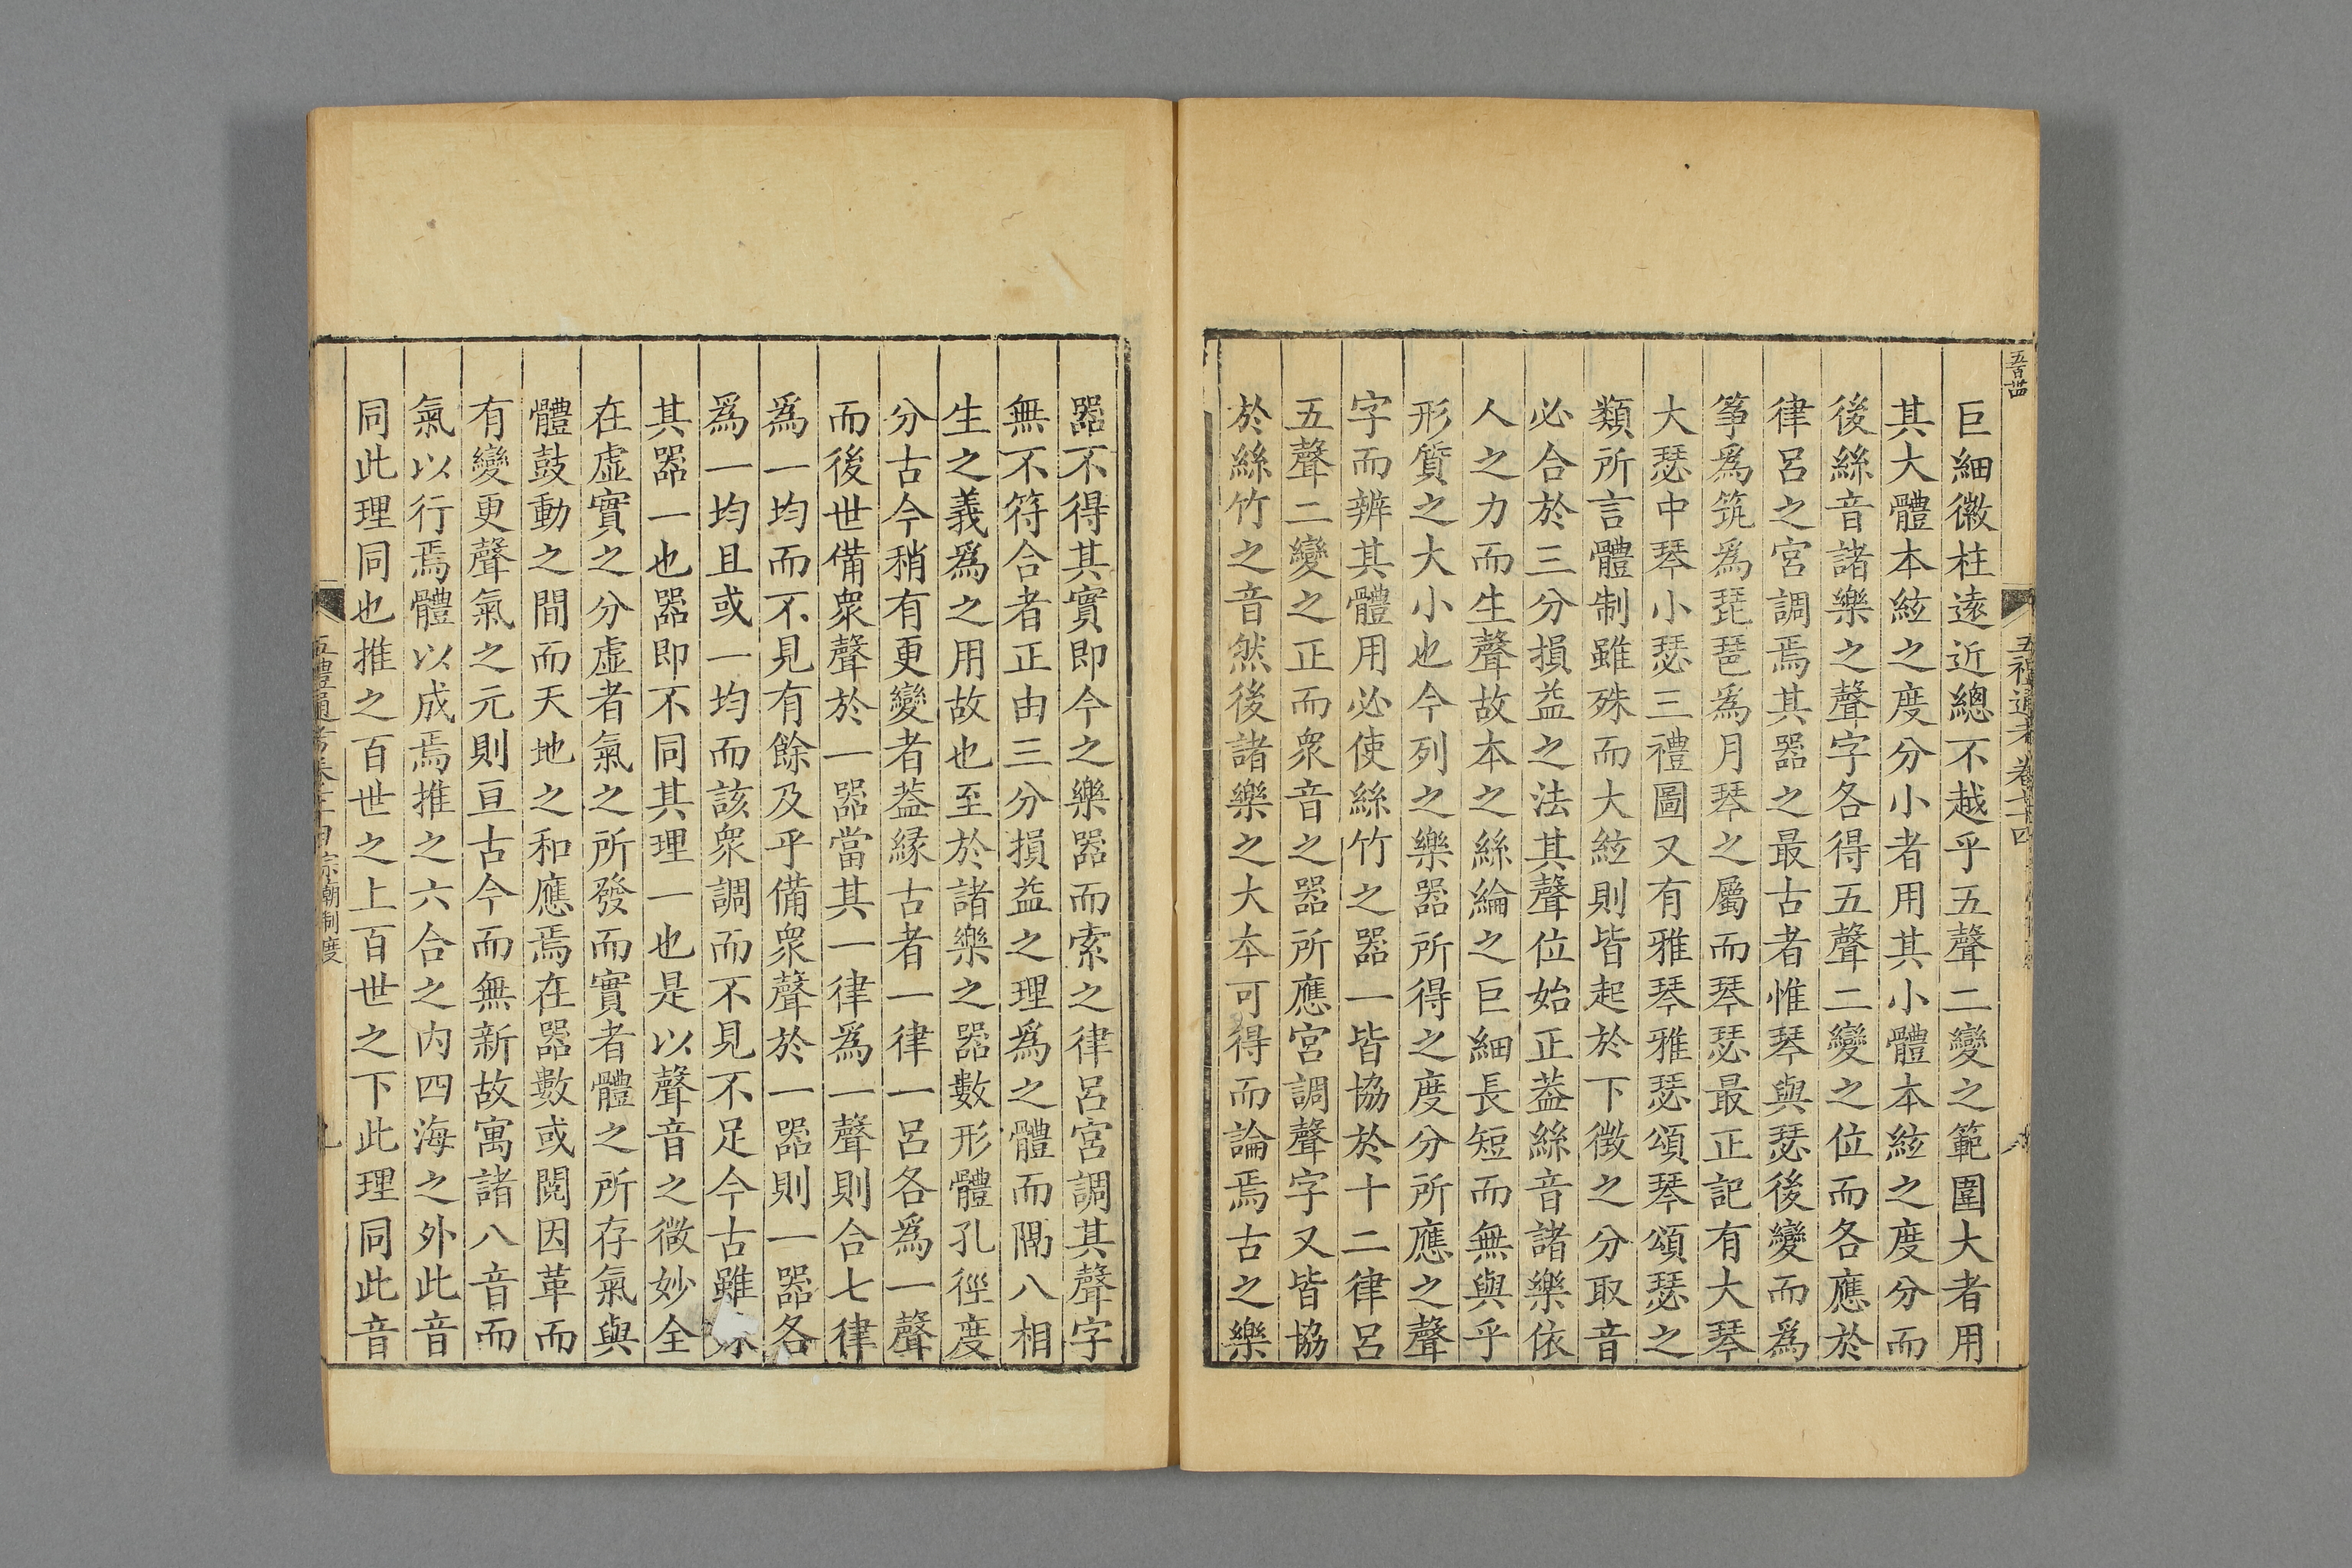 巨細徽柱遠近總不越乎五聲二變之範圍大者用
其大體本絃之度分小者用其小體本絃之度分而
後絲音諸樂之聲字各得五聲二變之位而各應於
律呂之宮調焉其器之最古者惟琴與瑟後變而爲
箏爲筑爲琵琶爲月琴之屬而琴瑟最正記有大琴
大瑟中琴小瑟三禮圖又有雅琴雅瑟頌琴頌瑟之
類所言體制雖殊而大絃則皆起於下徴之分取音
必合於三分損益之法其聲位始正葢絲音諸樂依
人之力而生聲故本之絲綸之巨細長短而無與乎
形質之大小也今列之樂器所得之度分所應之聲
字而辨其體用必使絲竹之器一皆協於十二律呂
五聲二變之正而衆音之器所應宮調聲字又皆協
於絲竹之音然後諸樂之大本可得而論焉古之樂
器不得其實即今之樂器而索之律呂宮調其聲字
無不符合者正由三分損益之理爲之體而隅八相
生之義爲之用故也至於諸樂之器數形體孔徑度
分古今稍有更變者葢縁古者一律一呂各爲一聲
而後世備衆聲於一器當其一律爲一聲則合七律
爲一均而不見有餘及乎備衆聲於一器則一器各
爲一均且或一均而該衆調而不見不足今古雖
其器一也器即不同其理一也是以聲音之微妙全
在虛實之分虛者氣之所發而實者體之所存氣與
體鼓動之間而天地之和應焉在器數或閱因革而
有變更聲氣之元則亘古今而無新故寓諸八音而
氣以行焉體以成焉推之六合之内四海之外此音
同此理同也推之百世之上百世之下此理同此音
五禮通考 宗廟制度 九